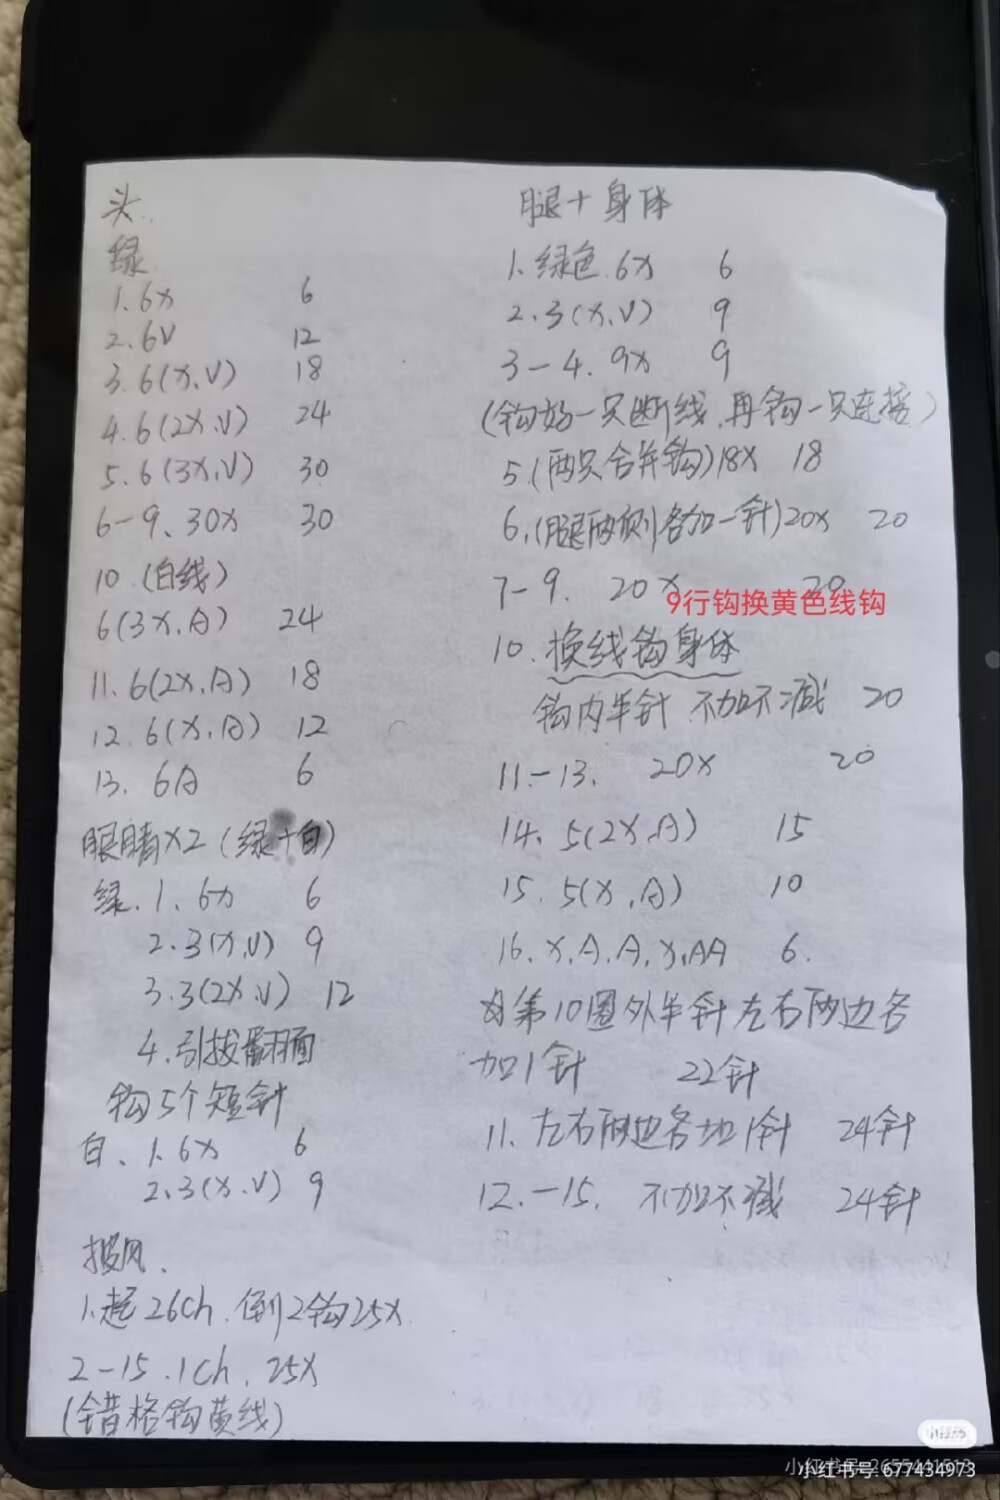 头.
绿
1. 6x 6
2. 6V 12
3. 6(X.V) 18
4. 6(2X.V) 24
5. 6(3X.V) 30
6-9、30x 30
10.(白线)
6(3X.A) 24
11. 6(2X.A) 18
12. 6(X.A) 12
13. 6A 6
眼睛X2(绿+白)
绿.1、6x 6
2. 3(X.V) 9
3. 3(2X.V) 12
4.引拔翻面
钩5个短针
白、1.6x 6
2. 3(X.V) 9
披风.
1.起26ch.倒2钩25X
2-15.1ch.25X
(错格钩黄线)
腿+身体
1.绿色.6x 6
2. 3(X.V) 9
3-4. 9x 9
(钩好一只断线.再钩一只连接)
5.(两只合并钩)18X 18
6.(腿两侧各加一针)20x 20
7-9. 20X 20
9行钩换黄色线钩
10.换线钩身体
钩内半针 不加不减 20
11-13. 20X 20
14、5(2X.A) 15
15. 5(X.A) 10
16. X.A.A.X.AA 6.
第10圈外半针左右两边各
加1针 22针
11.左右两边各加1针 24针
12.-15. 不加不减 24针
小红书
小红书号 677434973